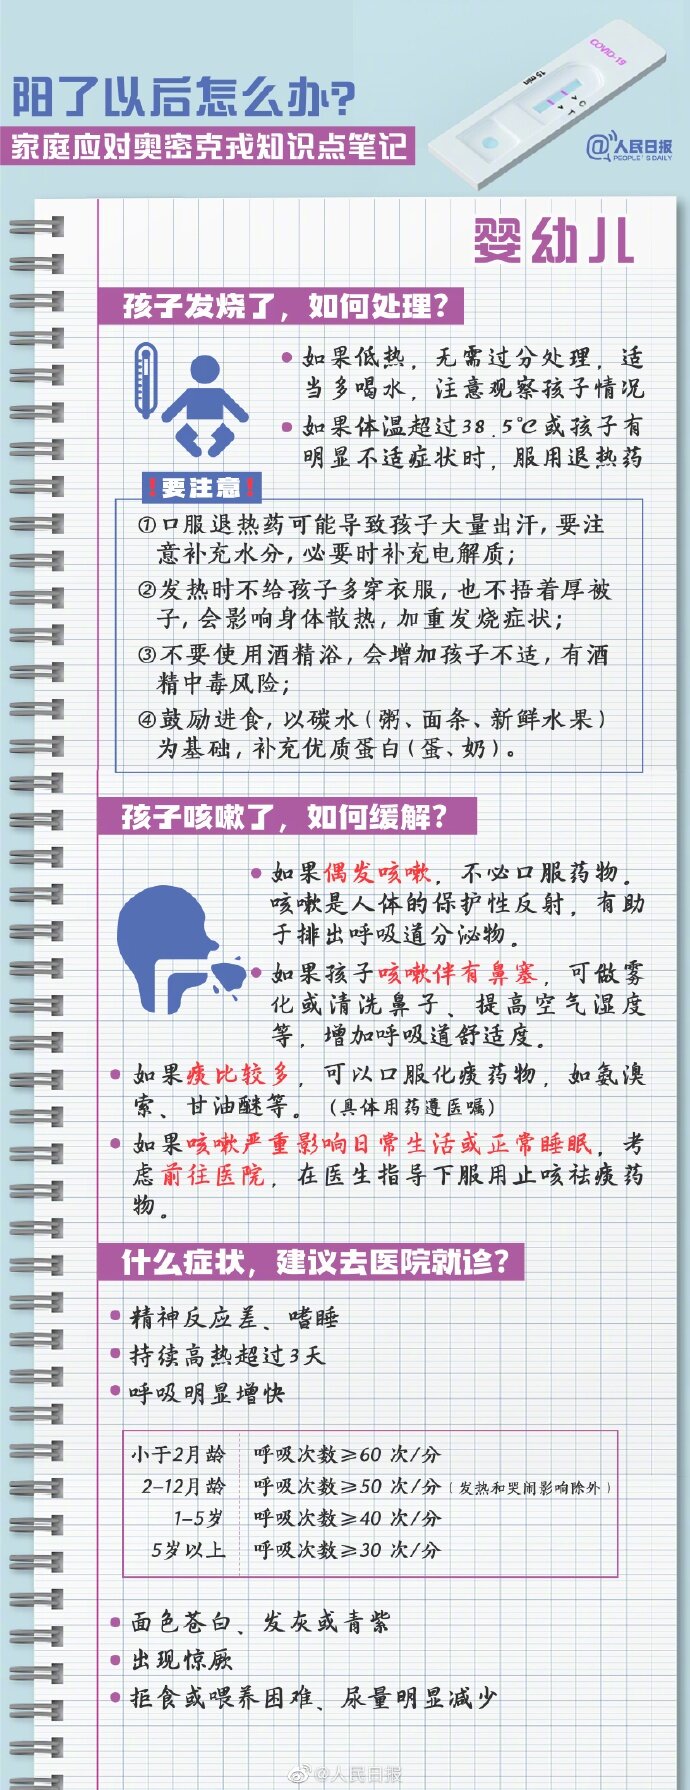 阳了以后怎么办?
家庭应对奥密克戎知识点笔记
COVID-19
15 min
C
T
@人民日报
PEOPLE'S DAILY
婴幼儿
孩子发烧了，如何处理?
如果低热，无需过分处理，适
当多喝水，注意观察孩子情况
如果体温超过38.5℃或孩子有
明显不适症状时，服用退热药
!要注意!
①口服退热药可能导致孩子大量出汗,要注
意补充水分,必要时补充电解质;
②发热时不给孩子多穿衣服,也不捂着厚被
子,会影响身体散热,加重发烧症状;
③不要使用酒精浴,会增加孩子不适,有酒
精中毒风险;
④鼓励进食,以碳水(粥、面条、新鲜水果)
为基础,补充优质蛋白(蛋、奶)。
孩子咳嗽了，如何缓解?
如果偶发咳嗽，不必口服药物。
咳嗽是人体的保护性反射，有助
于排出呼吸道分泌物。
如果孩子咳嗽伴有鼻塞，可做雾
化或清洗鼻子、提高空气湿度
等，增加呼吸道舒适度。
如果痰比较多，可以口服化痰药物，如氨溴
索、甘油醚等。(具体用药遵医嘱)
如果咳嗽严重影响日常生活或正常睡眠，考
虑前往医院，在医生指导下服用止咳祛痰药
物。
什么症状，建议去医院就诊?
精神反应差、嗜睡
持续高热超过3天
呼吸明显增快
小于2月龄 呼吸次数≥60 次/分
2-12月龄 呼吸次数≥50 次/分(发热和哭闹影响除外)
1-5岁 呼吸次数≥40 次/分
5岁以上 呼吸次数≥30 次/分
面色苍白、发灰或青紫
出现惊厥
拒食或喂养困难、尿量明显减少
@人民日报